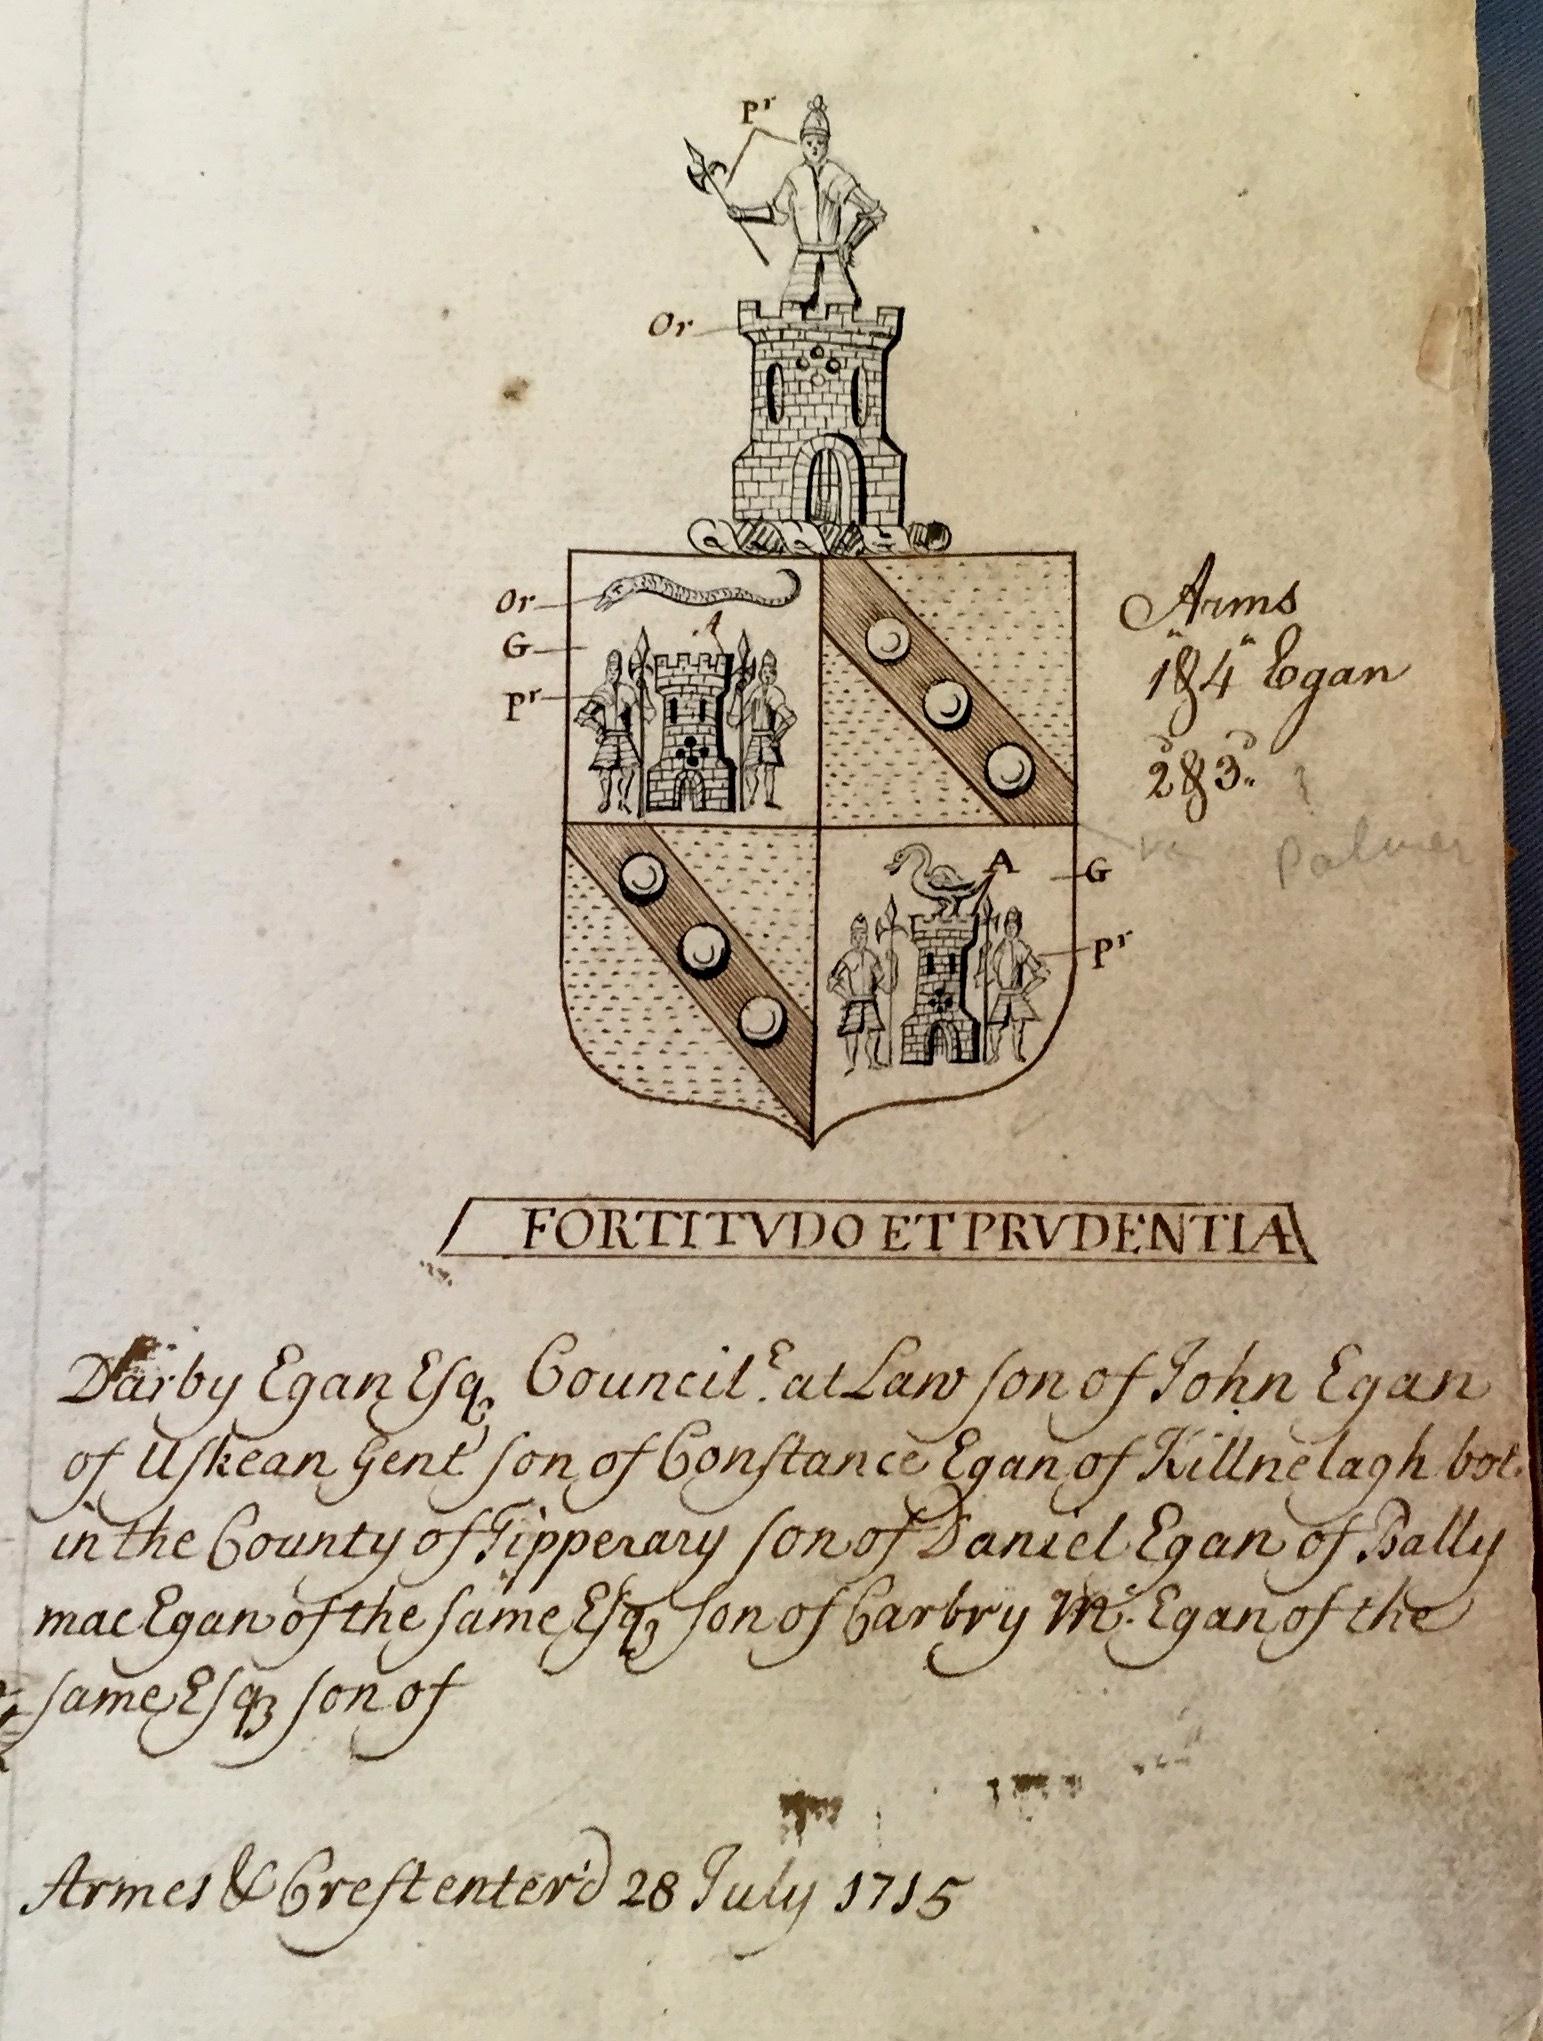 Pr
Or
Or
G
A
Pr
Arms
1 & 4 Egan
2d & 3d
Palmer
A
G
Pr
FORTITVDO ET PRVDENTIA
Darby Egan Esqr Councilr. at Law son of John Egan
of Uskean Gent son of Constance Egan of Killnelagh bot.
in the County of Tipperary son of Daniel Egan of Bally
mac Egan of the same Esqr son of Carbry Mc. Egan of the
same Esqr son of
Armes & Crest enter'd 28 July 1715